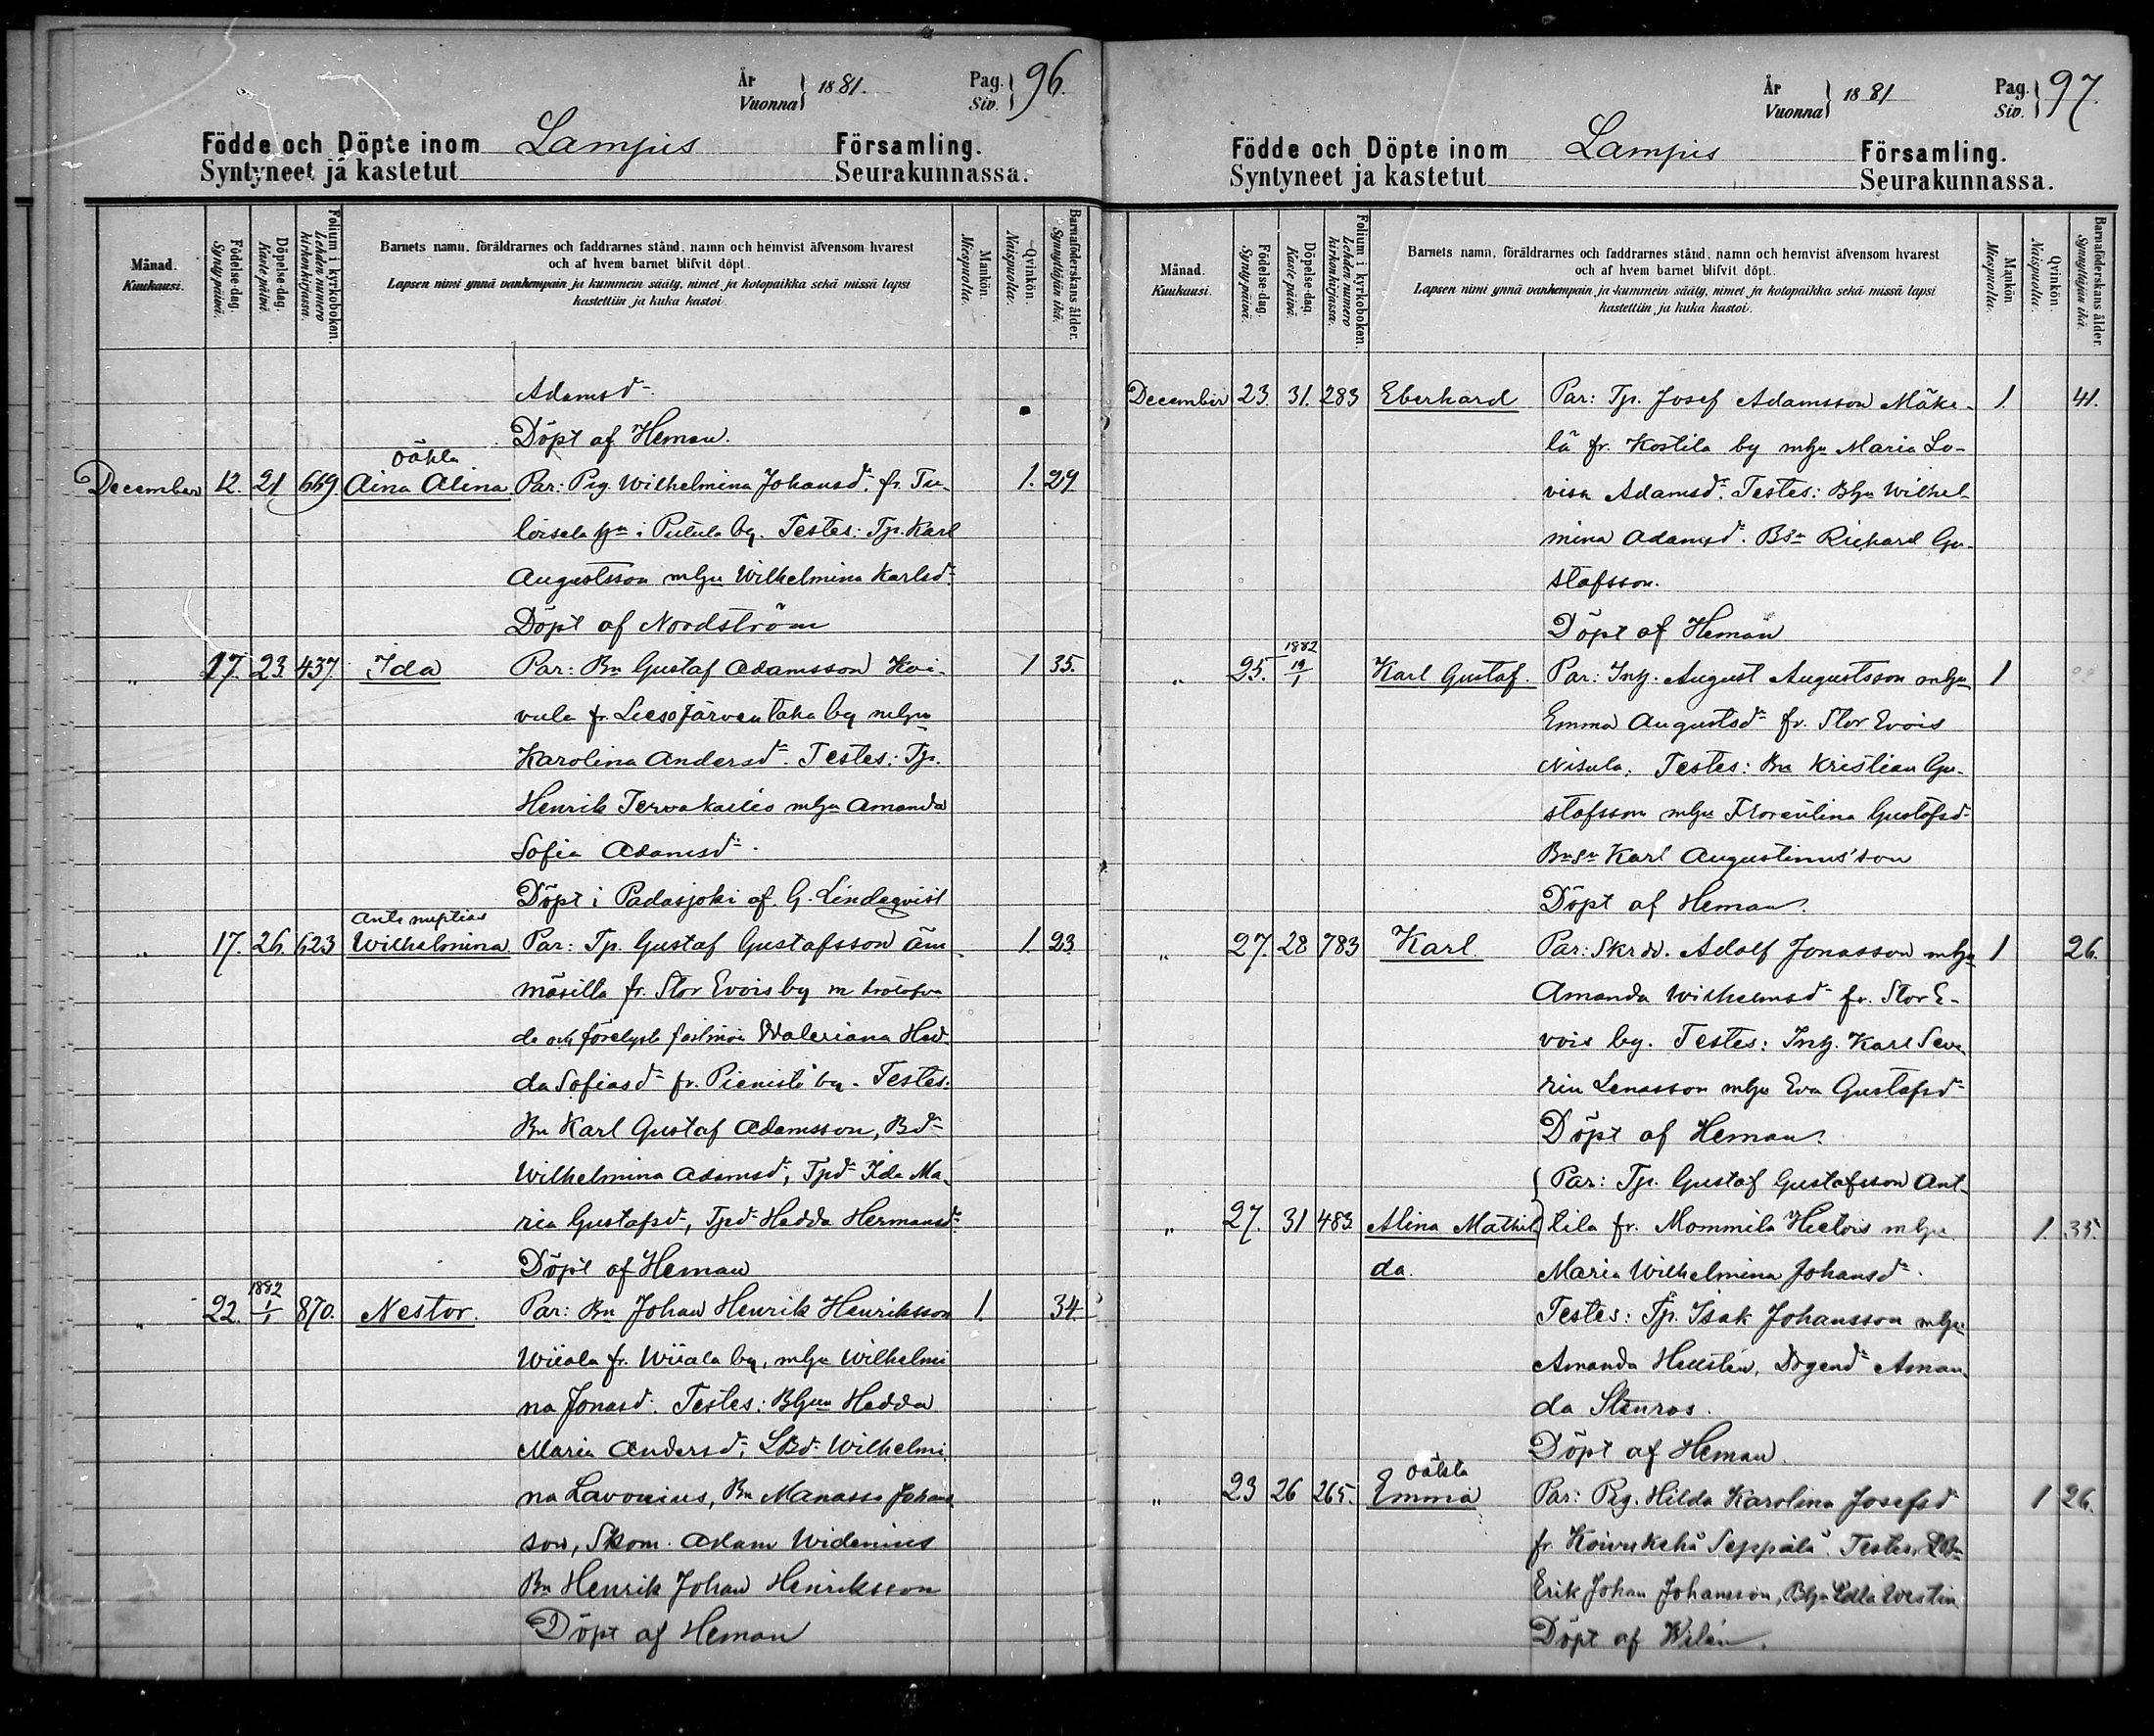 År
Vuonna } 1881.
Pag.
Siv. } 96.
Födde och Döpte inom Lampis Församling.
Syntyneet ja kastetut Seurakunnassa.
Månad. Kuukausi.
Födelse-dag. Synty päivä.
Döpelse-dag. Kaste päivä.
Folium i kyrkobokon. Lehden numero kirkonkirjassa.
Barnets namn, föräldrarnes och faddrarnes stånd, namn och hemvist äfvensom hvarest
och af hvem barnet blifvit döpt.
Lapsen nimi ynnä vanhempain ja kummein sääty, nimet ja kotopaikka sekä missä lapsi
kastettiin ja kuka kastoi.
Mankön. Miespuolta.
Qvinkön. Naispuolta.
Barnaföderskans ålder. Synnyttäjän ikä.
Adamsdr
Döpt af Heman.
oäkta
December 12. 21 669 Aina Alina Par: Pig. Wilhelmina Johansdr. fr. Tu- 1. 29
loisela hn i Putula by. Testes: Tp. Karl
Augustsson mhu Wilhelmina Karlsdr
Döpt af Nordström
" 17. 23. 437. Ida Par: Bn Gustaf Adamsson Koi- 1 35.
vula fr. Lieso Järventaka by mhu
Karolina Andersdr. Testes: Tp.
Henrik Tervakallio mhu Amanda
Sofia Adamsdr.
Döpt i Padasjoki af G. Lindeqvist
Ante nuptias
" 17. 26. 623 Wilhelmina. Par: Tp. Gustaf Gustafsson Äm- 1. 23
mäsilla fr. Stor Evois by m trolofva
de och förelyste fästmön Waleriana Hed
da Sofiasdr fr. Pienistö by. Testes.
Bn Karl Gustaf Adamsson, Bdr
Wilhelmina Adamsdr, Tpdr Ida Ma-
ria Gustafsdr, Tpdr Hedda Hermansdr
Döpt af Heman
1882
" 22. 1/1 870. Nestor. Par: Bn Johan Henrik Henriksson 1. 34.
Wiiala fr. Wiiala by, mhu Wilhelmi
na Jonasdr. Testes: Bhu Hedda
Maria Andersdr, LBdr Wilhelmi
na Lavonius, Bn Manasse Johans
son, Skom. Adam Widenius
Bn Henrik Johan Henriksson
Döpt af Heman
År
Vuonna } 1881
Pag.
Siv. } 97.
Födde och Döpte inom Lampis Församling.
Syntyneet ja kastetut Seurakunnassa.
Månad. Kuukausi.
Födelse-dag. Synty päivä.
Döpelse-dag. Kaste päivä.
Folium i kyrkobokon. Lehden numero kirkonkirjassa.
Barnets namn, föräldrarnes och faddrarnes stånd, namn och hemvist äfvensom hvarest
och af hvem barnet blifvit döpt.
Lapsen nimi ynnä vanhempain ja kummein sääty, nimet ja kotopaikka sekä missä lapsi
kastettiin ja kuka kastoi.
Mankön Miespuolta.
Qvinkön. Naispuolta.
Barnaföderskans ålder. Synnyttäjän ikä.
December 23. 31. 283 Eberhard Par: Tp. Josef Adamsson Mäke- 1. 41.
lä fr. Kostila by mhu Maria Lo-
visa Adamsdr. Testes: Bhu Wilhel
mina Adamsdr. Bsn Richard Gu-
stafsson.
Döpt af Heman
1882
" 25. 19/1 Karl Gustaf. Par: Inh. August Augustsson mhu 1
Emma Augustsdr fr. Stor Evois
Nisula. Testes: Bn Kristian Gu-
stafsson mhu Florentina Gustafsdr
Bnsn Karl Augustinusson
Döpt af Heman.
" 27. 28 783 Karl. Par: Skrdd. Adolf Jonasson mhu 1 26.
Amanda Wilhelmsdr fr. Stor E-
vois by. Testes: Inh. Karl Seve
rin Lenasson mhu Eva Gustafsdr
Döpt af Heman.
Par: Tp. Gustaf Gustafsson Ant-
" 27. 31 483 Alina Mathil tila fr. Mommila Hietois mhu 1. 35.
da. Maria Wilhelmina Johansdr.
Testes: Tp. Isak Johansson mhu
Amanda Hellstén, Drgendr Aman
da Stenroos.
Döpt af Heman.
oäkta
" 23 26 265. Emma Par: Pig. Hilda Karolina Josefsdr 1 26.
fr. Koivukehä Seppälä. Testes: LBn
Erik Johan Johansson, Bhu Edla Westin
Döpt af Wilén.